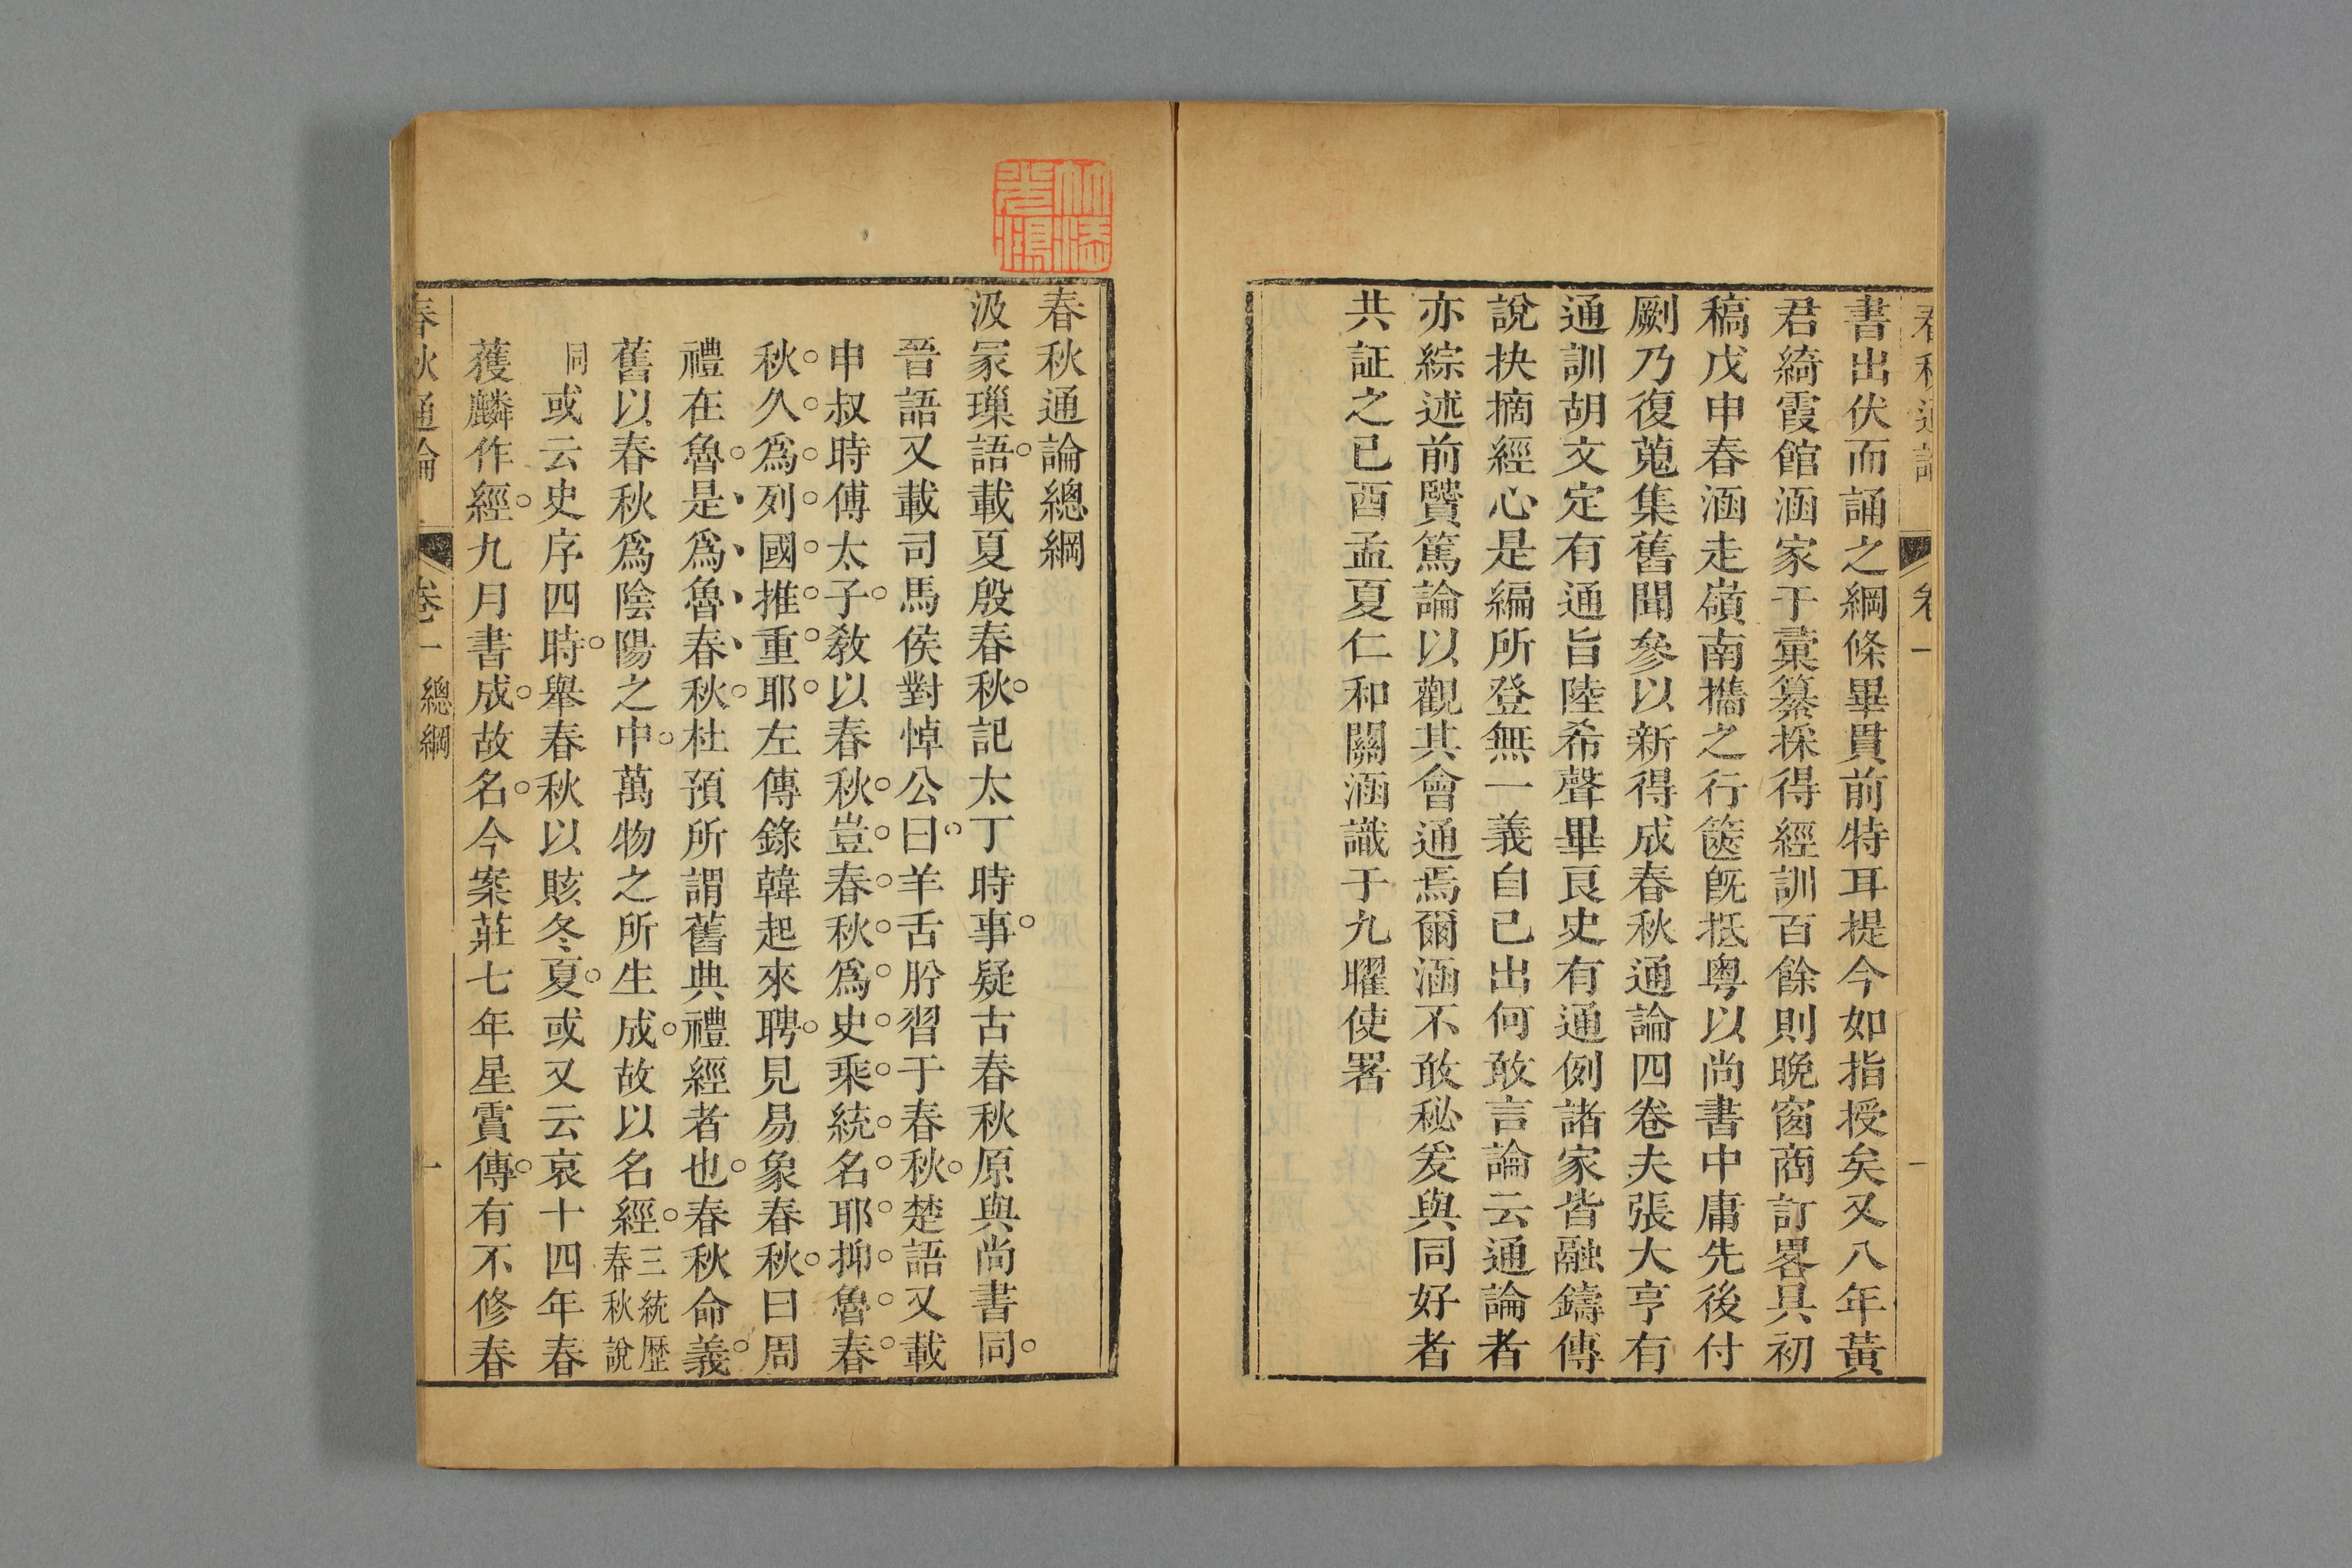 書出伏而誦之綱條畢貫前特耳提今如指授矣又八年黃
君綺霞館涵家于彚纂採得經訓百餘則晩窗商訂畧具初
稿戊申春涵走嶺南攜之行篋旣抵粵以尚書中庸先後付
劂乃復蒐集舊聞參以新得成春秋通論四卷夫張大亨有
通訓胡文定有通旨陸希聲畢良史有通例諸家皆融鑄傳
說抉摘經心是編所登無一義自己出何敢言論云通論者
亦綜述前贒篤論以觀其會通焉爾涵不敢秘爰與同好者
共証之已酉孟夏仁和關涵識于九曜使署
春秋通論總綱
汲冢璅語載夏殷春秋記太丁時事疑古春秋原與尚書同
晉語又載司馬侯對悼公曰羊舌肸習于春秋楚語又載
申叔時傅太子敎以春秋豈春秋爲史乘統名耶抑魯春
秋久爲列國推重耶左傳錄韓起來聘見易象春秋曰周
禮在魯是爲魯春秋杜預所謂舊典禮經者也春秋命義
舊以春秋爲陰陽之中萬物之所生成故以名經三統歷春秋說
同或云史序四時舉春秋以賅冬夏或又云哀十四年春
獲麟作經九月書成故名今案莊七年星霣傳有不修春
春秋通論 卷一 總綱 一